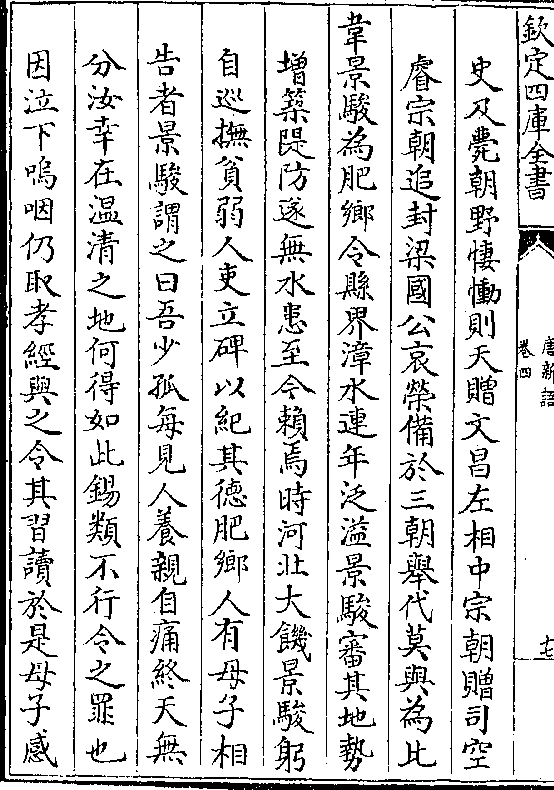 欽定四庫全書
唐新語
卷四
史及薨朝野悽慟則天贈文昌左相中宗朝贈司空
睿宗朝追封梁國公哀榮備於三朝舉代莫與為比
韋景駿為肥鄉令縣界漳水連年泛溢景駿審其地勢
增築隄防遂無水患至今賴焉時河北大饑景駿躬
自巡撫貧弱人吏立碑以紀其德肥鄉人有母子相
告者景駿謂之曰吾少孤每見人養親自痛終天無
分汝幸在温清之地何得如此錫類不行令之罪也
因泣下嗚咽仍取孝經與之令其習讀於是母子感